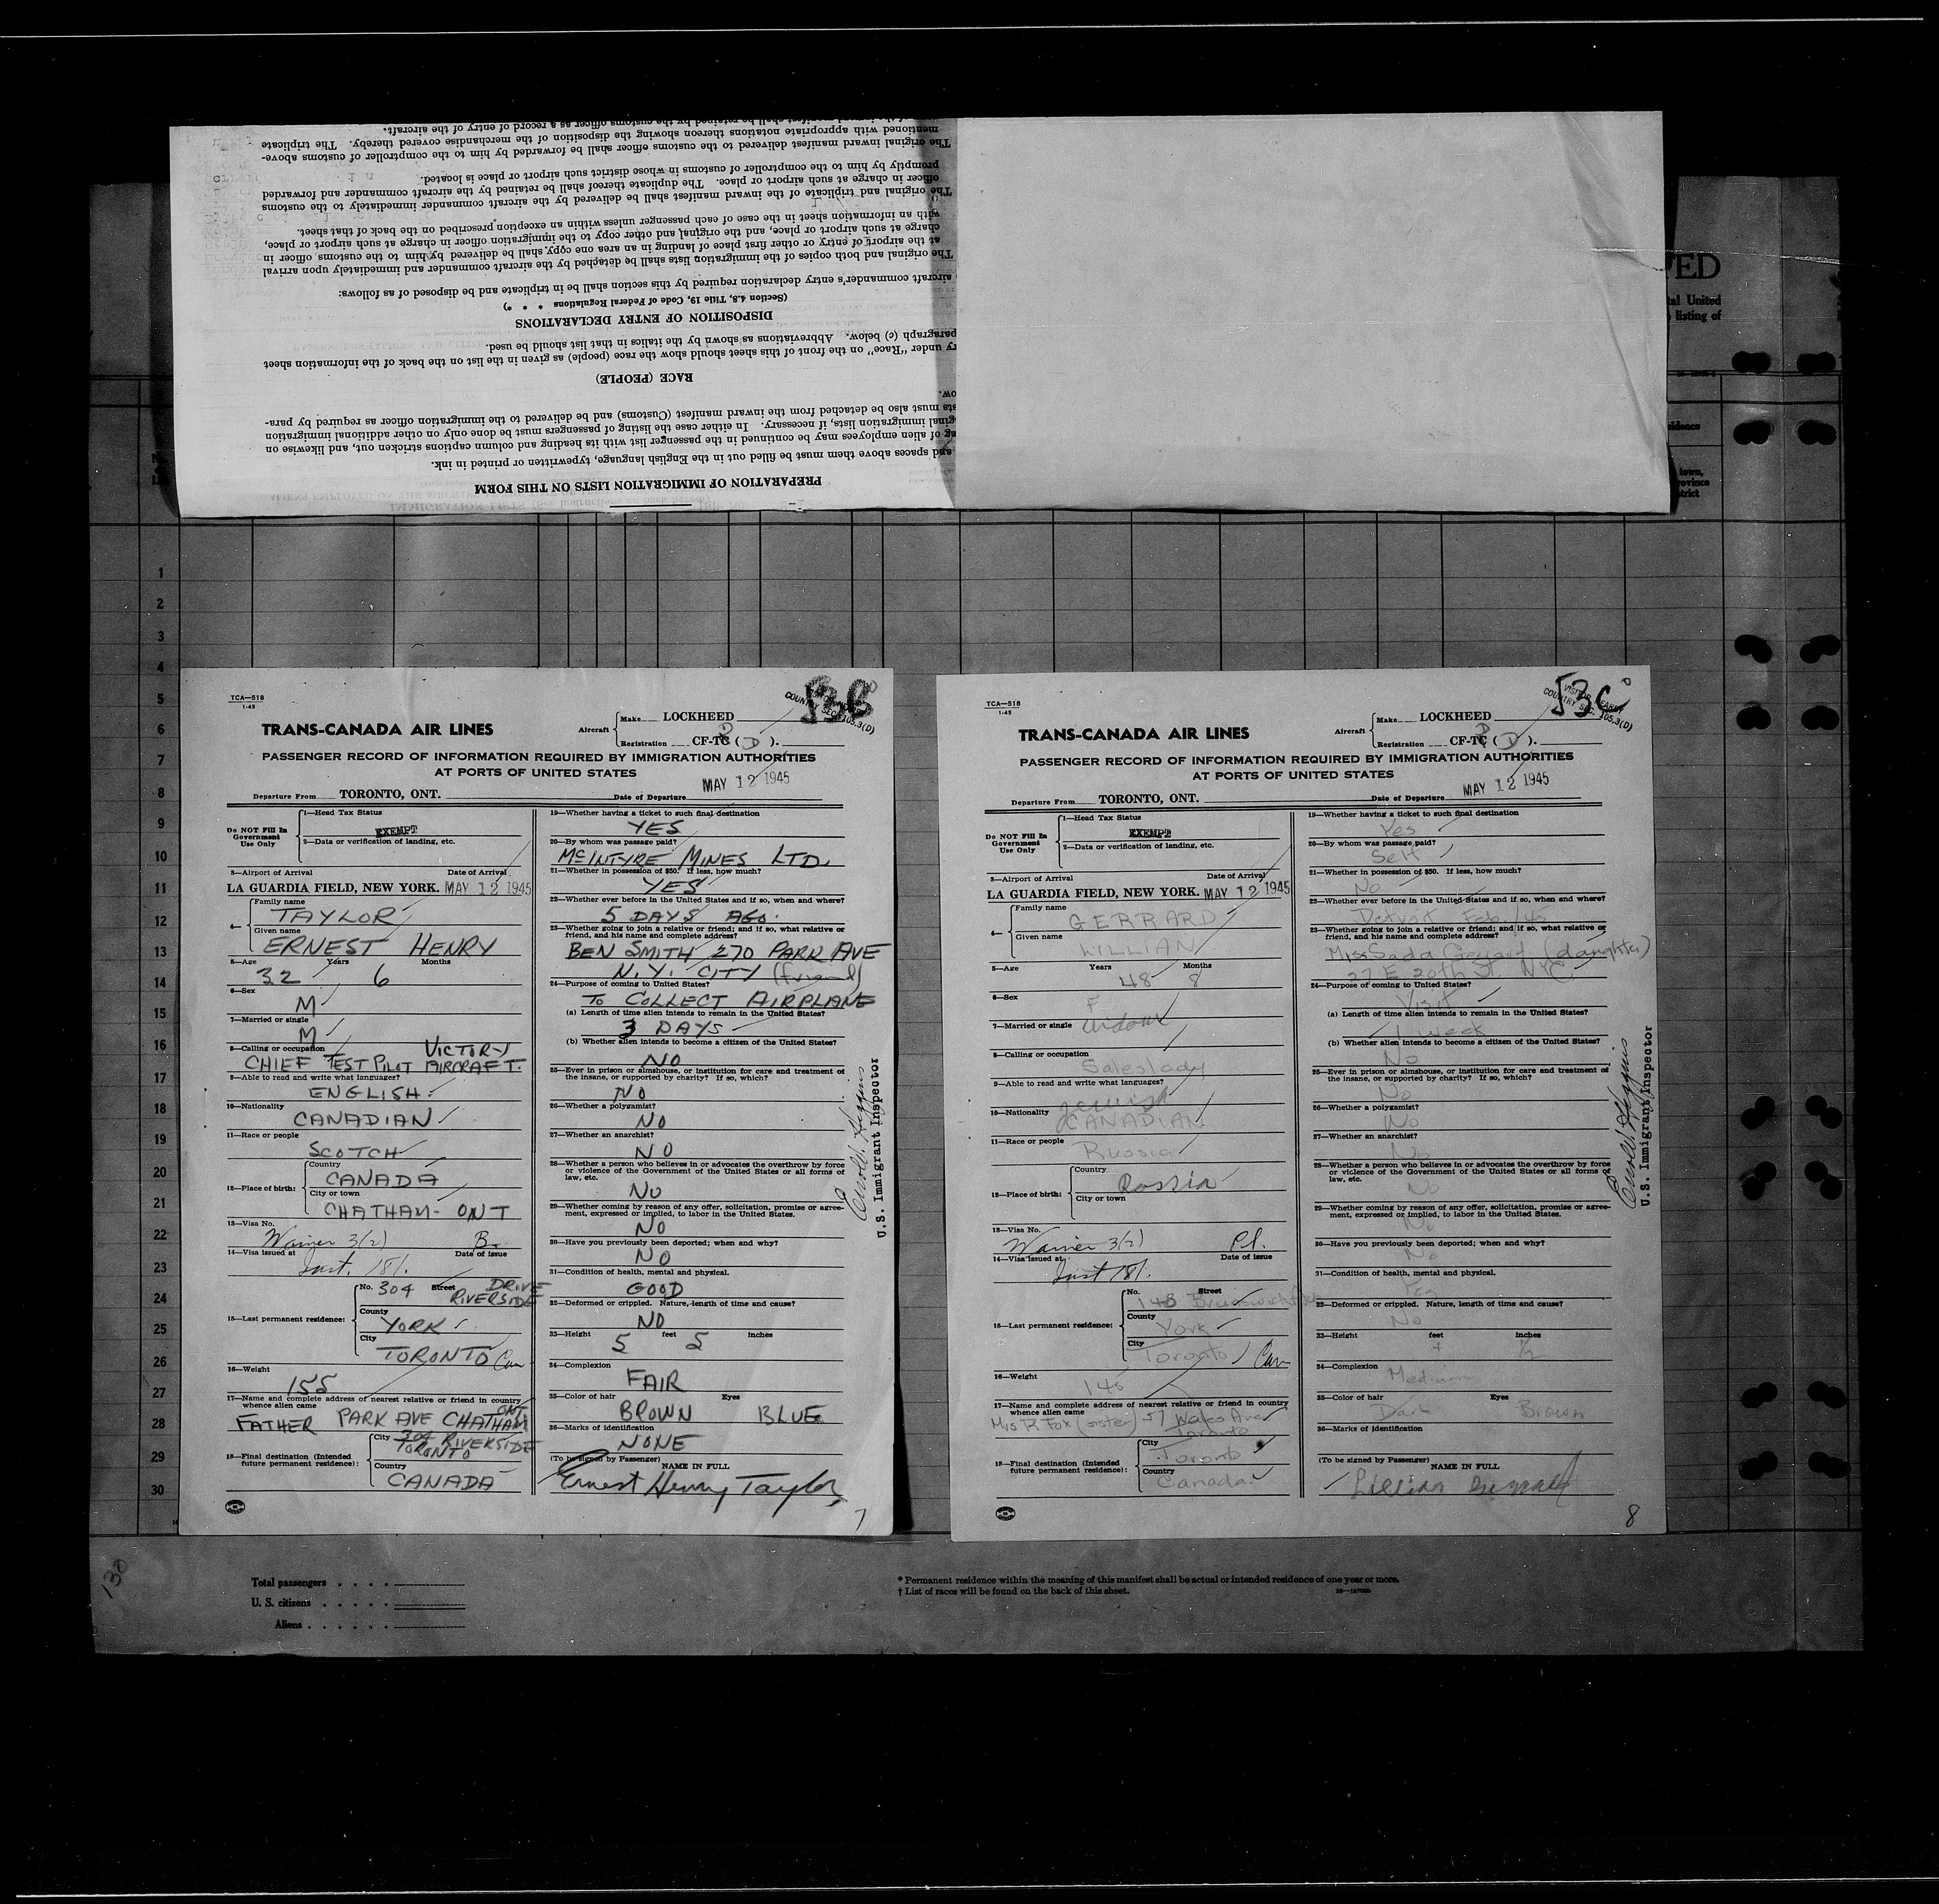 of the inward manifest shall be retained by the customs officer as a record of entry of the aircraft.
mentioned with appropriate notations thereon showing the disposition of the merchandise covered thereby. The triplicate
The original inward manifest delivered to the customs officer shall be forwarded by him to the comptroller of customs above-
promptly by him to the comptroller of customs in whose district such airport or place is located.
officer in charge at such airport or place. The duplicate thereof shall be retained by the aircraft commander and forwarded
The original and triplicate of the inward manifest shall be delivered by the aircraft commander immediately to the customs
with an information sheet in the case of each passenger unless within an exception prescribed on the back of that sheet.
charge at such airport or place, and the original and other copy to the immigration officer in charge at such airport or place,
at the airport of entry or other first place of landing in an area one copy shall be delivered by him to the customs officer in
The original and both copies of the immigration lists shall be detached by the aircraft commander and immediately upon arrival
aircraft commander's entry declaration required by this section shall be in triplicate and be disposed of as follows:
(Section 4.8, Title 19, Code of Federal Regulations * * *)
DISPOSITION OF ENTRY DECLARATIONS
paragraph (c) below. Abbreviations as shown by the italics in that list should be used.
ry under "Race" on the front of this sheet should show the race (people) as given in the list on the back of the information sheet
RACE (PEOPLE)
ow.
sts must also be detached from the inward manifest (Customs) and be delivered to the immigration officer as required by para-
ginal immigration lists, if necessary. In either case the listing of passengers must be done only on other additional immigration
ng of alien employees may be continued in the passenger list with its heading and column captions stricken out, and likewise on
and spaces above them must be filled out in the English language, typewritten or printed in ink.
PREPARATION OF IMMIGRATION LISTS ON THIS FORM
ED
tal United
listing of
idence
town,
ovince
trict
1
2
3
4
5
6
7
8
9
10
11
12
13
14
15
16
17
18
19
20
21
22
23
24
25
26
27
28
29
30
TCA—518
1-45
COUNTRY SEC. 105.3(D)
TRANS-CANADA AIR LINES
Aircraft
Make LOCKHEED
Registration CF-TC ( D ).
PASSENGER RECORD OF INFORMATION REQUIRED BY IMMIGRATION AUTHORITIES
AT PORTS OF UNITED STATES
MAY 12 1945
Departure From TORONTO, ONT. Date of Departure
Do NOT Fill In Government Use Only
1—Head Tax Status
EXEMPT
2—Data or verification of landing, etc.
3—Airport of Arrival Date of Arrival
LA GUARDIA FIELD, NEW YORK. MAY 12 1945
4—
Family name
TAYLOR
Given name
ERNEST HENRY
5—Age Years Months
32 6
6—Sex
M
7—Married or single
M
8—Calling or occupation
CHIEF TEST PILOT VICTORY AIRCRAFT.
9—Able to read and write what languages?
ENGLISH.
10—Nationality
CANADIAN
11—Race or people
SCOTCH
12—Place of birth:
Country
CANADA
City or town
CHATHAM- ONT
13—Visa No.
Waiver 3(2) B.
14—Visa issued at Date of issue
Inst. 181.
15—Last permanent residence:
No. 304 Street RIVERSIDE DRIVE
County
YORK
City
TORONTO Can
16—Weight
155
17—Name and complete address of nearest relative or friend in country
whence alien came
FATHER PARK AVE CHATHAM ONT.
18—Final destination (Intended
future permanent residence):
City 304 RIVERSIDE
TORONTO
Country
CANADA
19—Whether having a ticket to such final destination
YES
20—By whom was passage paid?
McINTYRE MINES LTD.
21—Whether in possession of $50. If less, how much?
YES
22—Whether ever before in the United States and if so, when and where?
5 DAYS AGO.
23—Whether going to join a relative or friend; and if so, what relative or
friend, and his name and complete address?
BEN SMITH 270 PARK AVE
N.Y. CITY (friend)
24—Purpose of coming to United States?
TO COLLECT AIRPLANE
(a) Length of time alien intends to remain in the United States?
3 DAYS
(b) Whether alien intends to become a citizen of the United States?
NO
25—Ever in prison or almshouse, or institution for care and treatment of
the insane, or supported by charity? If so, which?
NO
26—Whether a polygamist?
NO
27—Whether an anarchist?
NO
28—Whether a person who believes in or advocates the overthrow by force
or violence of the Government of the United States or all forms of
law, etc.
NO
29—Whether coming by reason of any offer, solicitation, promise or agree-
ment, expressed or implied, to labor in the United States.
NO
30—Have you previously been deported; when and why?
NO
31—Condition of health, mental and physical.
GOOD
32—Deformed or crippled. Nature, length of time and cause?
NO
33—Height feet inches
5 5
34—Complexion
FAIR
35—Color of hair Eyes
BROWN BLUE
36—Marks of identification
NONE
(To be signed by Passenger) NAME IN FULL
Ernest Henry Taylor
7
U.S. Immigrant Inspector
TCA—518
1-45
53C
VISITOR
COUNTRY SEC. 105.3(D)
TRANS-CANADA AIR LINES
Aircraft
Make LOCKHEED
Registration CF-TC ( D ).
PASSENGER RECORD OF INFORMATION REQUIRED BY IMMIGRATION AUTHORITIES
AT PORTS OF UNITED STATES
MAY 12 1945
Departure From TORONTO, ONT. Date of Departure
Do NOT Fill In Government Use Only
1—Head Tax Status
EXEMPT
2—Data or verification of landing, etc.
3—Airport of Arrival Date of Arrival
LA GUARDIA FIELD, NEW YORK. MAY 12 1945
4—
Family name
GERRARD
Given name
LILLIAN
5—Age Years Months
48 8
6—Sex
F
7—Married or single
widow
8—Calling or occupation
Saleslady
9—Able to read and write what languages?
Jewish
10—Nationality
CANADIAN
11—Race or people
Russia
12—Place of birth:
Country
Russia
City or town
13—Visa No.
Waiver 3(2) P.l.
14—Visa issued at Date of issue
Inst 181.
15—Last permanent residence:
No. Street
148 Brunswick Ave
County
York
City
Toronto Can
16—Weight
145
17—Name and complete address of nearest relative or friend in country
whence alien came
Mrs R. Fox (sister) 57 Wales Ave
Toronto
18—Final destination (Intended
future permanent residence):
City
Toronto
Country
Canada
19—Whether having a ticket to such final destination
Yes
20—By whom was passage paid?
Self
21—Whether in possession of $50. If less, how much?
No
22—Whether ever before in the United States and if so, when and where?
Detroit Feb./45
23—Whether going to join a relative or friend; and if so, what relative or
friend, and his name and complete address?
Miss Sada (daughter)
27 E 20th St. NYC
24—Purpose of coming to United States?
Visit
(a) Length of time alien intends to remain in the United States?
1 week
(b) Whether alien intends to become a citizen of the United States?
No
25—Ever in prison or almshouse, or institution for care and treatment of
the insane, or supported by charity? If so, which?
No
26—Whether a polygamist?
No
27—Whether an anarchist?
No
28—Whether a person who believes in or advocates the overthrow by force
or violence of the Government of the United States or all forms of
law, etc.
No
29—Whether coming by reason of any offer, solicitation, promise or agree-
ment, expressed or implied, to labor in the United States.
No
30—Have you previously been deported; when and why?
No
31—Condition of health, mental and physical.
32—Deformed or crippled. Nature, length of time and cause?
No
33—Height feet inches
4
34—Complexion
Medium
35—Color of hair Eyes
Dark Brown
36—Marks of identification
(To be signed by Passenger) NAME IN FULL
Lillian Gerrard
8
U.S. Immigrant Inspector
130
Total passengers
U. S. citizens
Aliens
* Permanent residence within the meaning of this manifest shall be actual or intended residence of one year or more.
† List of races will be found on the back of this sheet.